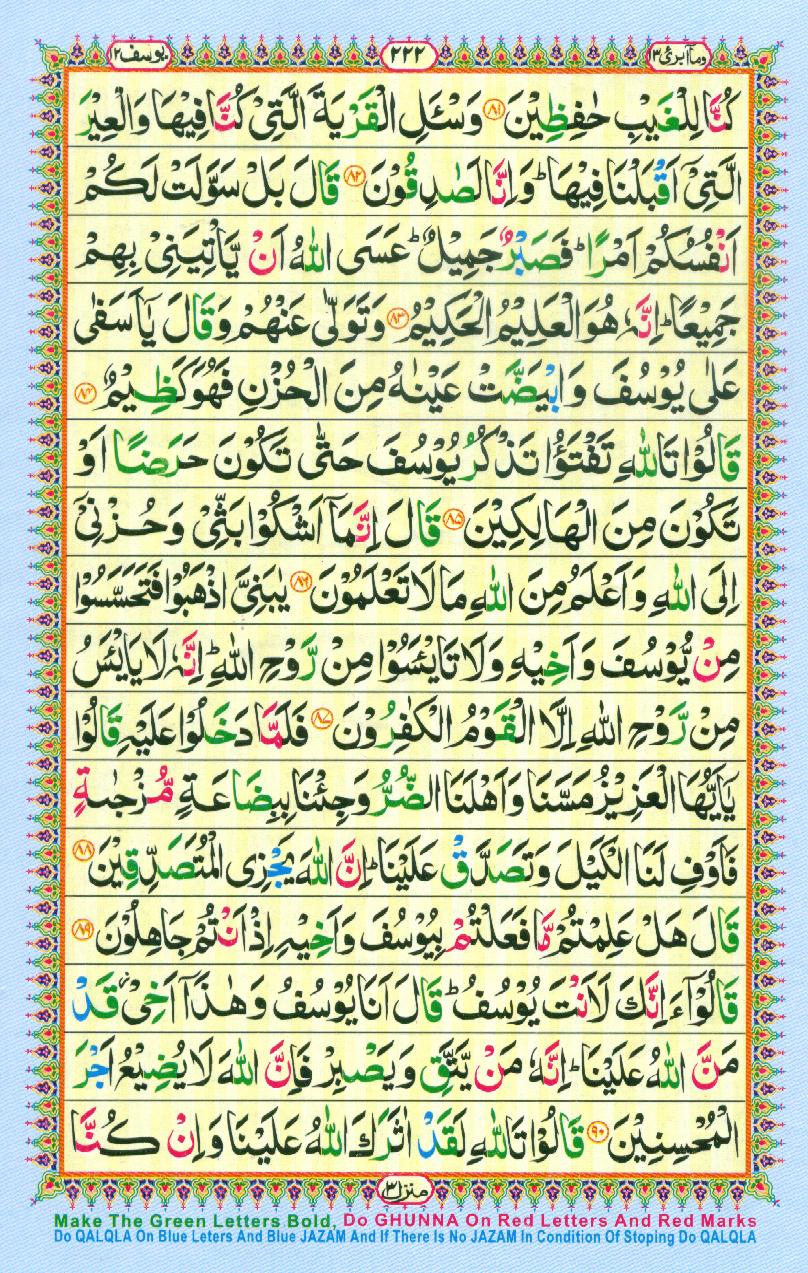 يوسف ١٢
٢٢٢
وما ابرئ ١٣
كُنَّا لِلْغَيْبِ حٰفِظِيْنَ ۝٨١ وَسْـَٔلِ الْقَرْيَةَ الَّتِيْ كُنَّا فِيْهَا وَالْعِيْرَ
الَّتِيْٓ اَقْبَلْنَا فِيْهَا ؕ وَاِنَّا لَصٰدِقُوْنَ ۝٨٢ قَالَ بَلْ سَوَّلَتْ لَكُمْ
اَنْفُسُكُمْ اَمْرًا ؕ فَصَبْرٌ جَمِيْلٌ ؕ عَسَى اللّٰهُ اَنْ يَّاْتِيَنِيْ بِهِمْ
جَمِيْعًا ؕ اِنَّهٗ هُوَ الْعَلِيْمُ الْحَكِيْمُ ۝٨٣ وَتَوَلّٰى عَنْهُمْ وَقَالَ يٰٓاَسَفٰى
عَلٰى يُوْسُفَ وَابْيَضَّتْ عَيْنٰهُ مِنَ الْحُزْنِ فَهُوَ كَظِيْمٌ ۝٨٤
قَالُوْا تَاللّٰهِ تَفْتَؤُا تَذْكُرُ يُوْسُفَ حَتّٰى تَكُوْنَ حَرَضًا اَوْ
تَكُوْنَ مِنَ الْهَالِكِيْنَ ۝٨٥ قَالَ اِنَّمَآ اَشْكُوْا بَثِّيْ وَحُزْنِيْٓ
اِلَى اللّٰهِ وَاَعْلَمُ مِنَ اللّٰهِ مَا لَا تَعْلَمُوْنَ ۝٨٦ يٰبَنِيَّ اذْهَبُوْا فَتَحَسَّسُوْا
مِنْ يُّوْسُفَ وَاَخِيْهِ وَلَا تَايْـَٔسُوْا مِنْ رَّوْحِ اللّٰهِ ؕ اِنَّهٗ لَا يَايْـَٔسُ
مِنْ رَّوْحِ اللّٰهِ اِلَّا الْقَوْمُ الْكٰفِرُوْنَ ۝٨٧ فَلَمَّا دَخَلُوْا عَلَيْهِ قَالُوْا
يٰٓاَيُّهَا الْعَزِيْزُ مَسَّنَا وَاَهْلَنَا الضُّرُّ وَجِئْنَا بِبِضَاعَةٍ مُّزْجٰىةٍ
فَاَوْفِ لَنَا الْكَيْلَ وَتَصَدَّقْ عَلَيْنَا ؕ اِنَّ اللّٰهَ يَجْزِى الْمُتَصَدِّقِيْنَ ۝٨٨
قَالَ هَلْ عَلِمْتُمْ مَّا فَعَلْتُمْ بِيُوْسُفَ وَاَخِيْهِ اِذْ اَنْتُمْ جَاهِلُوْنَ ۝٨٩
قَالُوْٓا ءَاِنَّكَ لَاَنْتَ يُوْسُفُ ؕ قَالَ اَنَا يُوْسُفُ وَهٰذَآ اَخِيْ ؗ قَدْ
مَنَّ اللّٰهُ عَلَيْنَا ؕ اِنَّهٗ مَنْ يَّتَّقِ وَيَصْبِرْ فَاِنَّ اللّٰهَ لَا يُضِيْعُ اَجْرَ
الْمُحْسِنِيْنَ ۝٩٠ قَالُوْا تَاللّٰهِ لَقَدْ اٰثَرَكَ اللّٰهُ عَلَيْنَا وَاِنْ كُنَّا
منزل ٣
Make The Green Letters Bold, Do GHUNNA On Red Letters And Red Marks
Do QALQLA On Blue Leters And Blue JAZAM And If There Is No JAZAM In Condition Of Stoping Do QALQLA